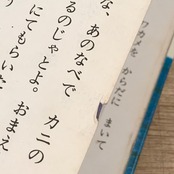 ワカメを からだに まいて
な、あのなべで
るのじゃとよ。
カニの
にてもらいた
おまえ
り